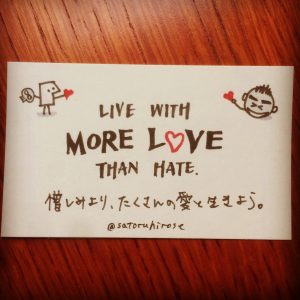 LIVE WITH
MORE LOVE
THAN HATE.
憎しみより、たくさんの愛と生きよう。
@satoruhirose